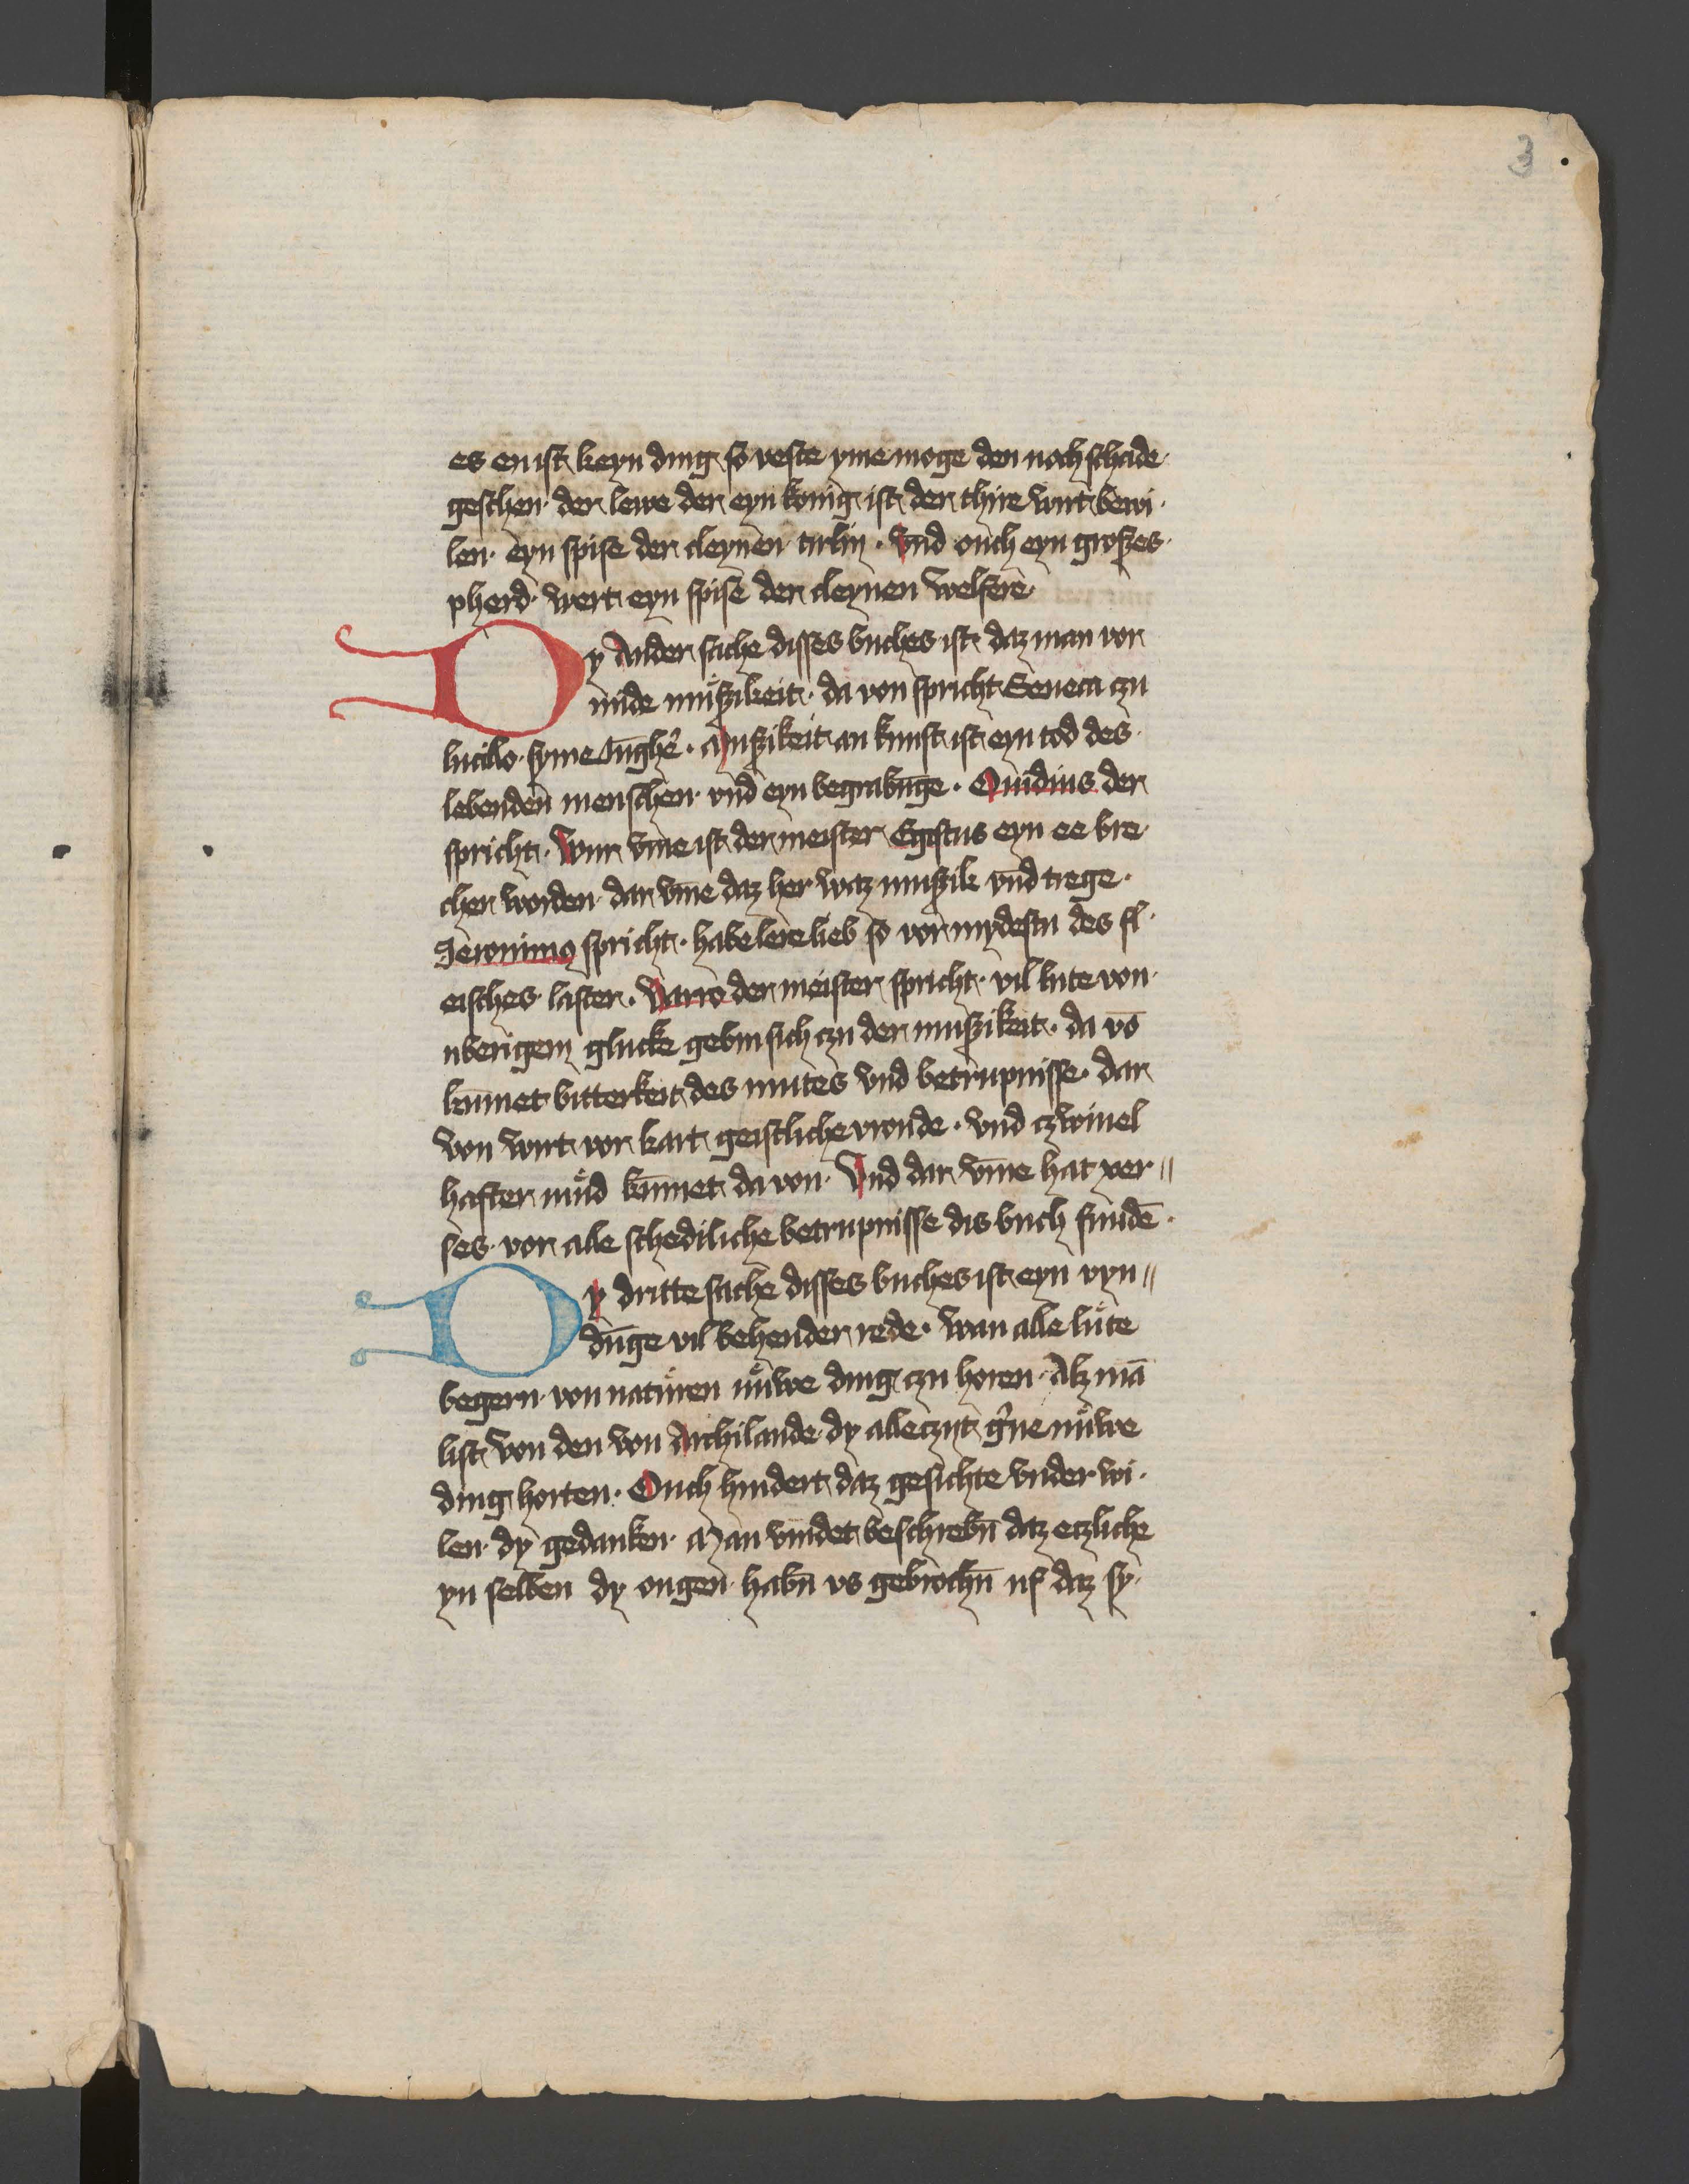 3
es enist keyn ding so veste yme moge den noch schade
geschen · der lewe der eyn konig ist der thire wirt bewi·
len · eyn spise der cleynen tirlin · Vnd ouch eyn groszes
pherd · wert eyn spise der cleynen welfere
Dy Ander sache disses buches ist daz man vor
mide muͤszikeit · da von spricht Seneca czu
lucillo · syme Iūgh'e · Muszikeit an kunst ist eyn tod des
lebenden menschen · vnd eyn begrabūge · Ouidius der
spricht · Wur vm̄e ist der meister Egistus eyn ee bre·
cher worden · dar vm̄e daz her waz muszik vnd trege ·
Jeronimo spricht · habe lere lieb so vor mydestu des fl·
eisches laster · Varro der meister spricht · vil lute von
uberigem glucke gebin sich czu der muszikeit · da vō
kūmet bitterkeit des mutes vnd betrupnisse · dar
von wirt vor kart geistliche vroude · vnd czwiuel
hafter muͤd kūmet da von · Vnd dar vm̄e hat xer〃
ses · vor alle schediliche betrupnisse dis buch fundē
Dy dritte sache disses buches ist eyn vyn〃
dūge vil behender rede · wan alle luͤte
begern von natuͤren nuͤwe ding czu horen · Alz mā
list von den von Archilande dy alleczyt g'ne nuͤwe
ding horten · Ouch hindert daz gesichte vnder wi·
len · dy gedanken · Man vindet beschrebn̄ daz eczliche
yn selben dy ougen habn̄ vs gebrochn̄ uf daz sy